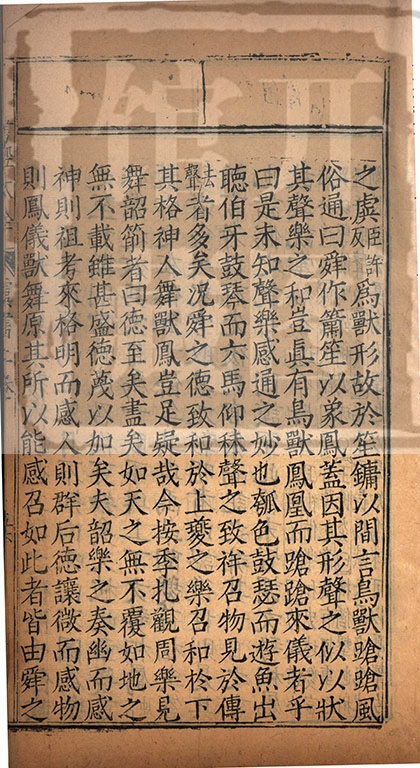 之虡臣許反爲獸形故於笙鏞以間言鳥獸蹌蹌風
俗通曰舜作簫笙以象鳳蓋因其形聲之似以狀
其聲樂之和豈眞有鳥獸鳳凰而蹌蹌來儀者乎
曰是未知聲樂感通之妙也瓠色鼓瑟而遊魚出
聽伯牙鼓琴而六馬仰秣聲之致祥召物見於傳
去聲者多矣况舜之德致和於上夔之樂召和於下
其格神人舞獸鳳豈足疑哉今按季札觀周樂見
舞韶箾者曰德至矣盡矣如天之無不覆如地之
無不載雖甚盛德蔑以加矣夫韶樂之奏幽而感
神則祖考來格明而感人則群后德讓微而感物
則鳳儀獸舞原其所以能感召如此者皆由舜之